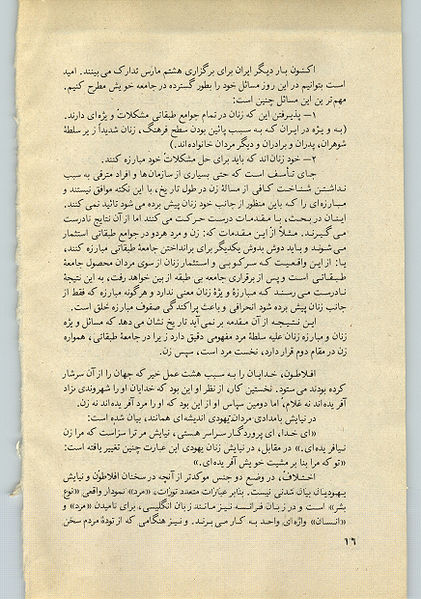 اکنون بار دیگر ایران برای برگزاری هشتم مارس تدارک می بینند. امید
است بتوانیم در این روز مسائل خود را بطور گسترده در جامعه خویش مطرح کنیم.
مهم ترین این مسائل چنین است:
۱— پذیرفتن این که زنان در تمام جوامع طبقاتی مشکلات و یژه ای دارند.
(به و یژه در ایران که به سبب پائین بودن سطح فرهنگ، زنان شدیداً زیر سلطهٔ
شوهران، پدران و برادران و دیگر مردان خانواده اند.)
۲— خود زنان اند که باید برای حل مشکلات خود مبارزه کنند.
جای تأسف است که حتی بسیاری از سازمان ها و افراد مترقی به سبب
نداشتن شناخت کافی از مسالهٔ زن در طول تاریخ، با این نکته موافق نیستند و
مبارزه ای را که باین منظور از جانب خود زنان پیش برده می شود تائید نمی کنند.
اینان در بحث، با مقدمات درست حرکت می کنند اما از آن نتایج نادرست
می گیرند. مثلاً از این مقدمات که: زن و مرد هر دو در جوامع طبقاتی استثمار
می شوند و باید دوش بدوش یکدیگر برای برانداختن جامعهٔ طبقاتی مبارزه کنند،
یا: از این واقعیت که سرکوبی و استثمار زنان از سوی مردان محصول جامعهٔ
طبقاتی است و پس از برقراری جامعه بی طبقه از بین خواهد رفت، به این نتیجهٔ
نادرست می رسند که مبارزهٔ و یژهٔ زنان معنی ندارد و هرگونه مبارزه که فقط از
جانب زنان پیش برده شود انحرافی و باعث پراکندگی صفوف مبارزه خلق است.
این نتیجه از آن مقدمه بر نمی آید تاریخ نشان می دهد که مسائل و یژه
زنان و مبارزه زنان علیه سلطهٔ مرد مفهومی دقیق دارد زیرا در جامعهٔ طبقاتی، همواره
زن در مقام دوم قرار دارد، نخست مرد است، سپس زن.
افلاطون، خدایان را به سبب هشت عمل خیر که جهان را از آن سرشار
کرده بودند می ستود. نخستین کار، از نظر او این بود که خدایان او را شهروندی نژاد
آفریده اند نه غلام، اما دومین سپاس او از این بود که او را مرد آفریده اند نه زن.
در نیایش بامدادی مردان یهودی اندیشه ای همانند، بیان شده است:
«ای خدا، ای پروردگار سراسر هستی، نیایش مر ترا سزاست که مرا زن
نیافریده ای.» در مقابل، در نیایش زنان یهودی این عبارت چنین تغییر یافته است:
«تو که مرا بنا بر مشیت خویش آفریده ای.»
اختلاف، در وضع دو جنس موکدتر از آنچه در سخنان افلاطون و نیایش
یهودیان بیان شدنی نیست. بنابر عبارات متعدد تورات، «مرد» نمودار واقعی «نوع
بشر» است و در زبان فرانسه نیز مانند زبان انگلیسی، برای نامیدن «مرد» و
«انسان» واژه ای واحد به کار می برند. و نیز هنگامی که از تودهٔ مردم سخن
۱۶